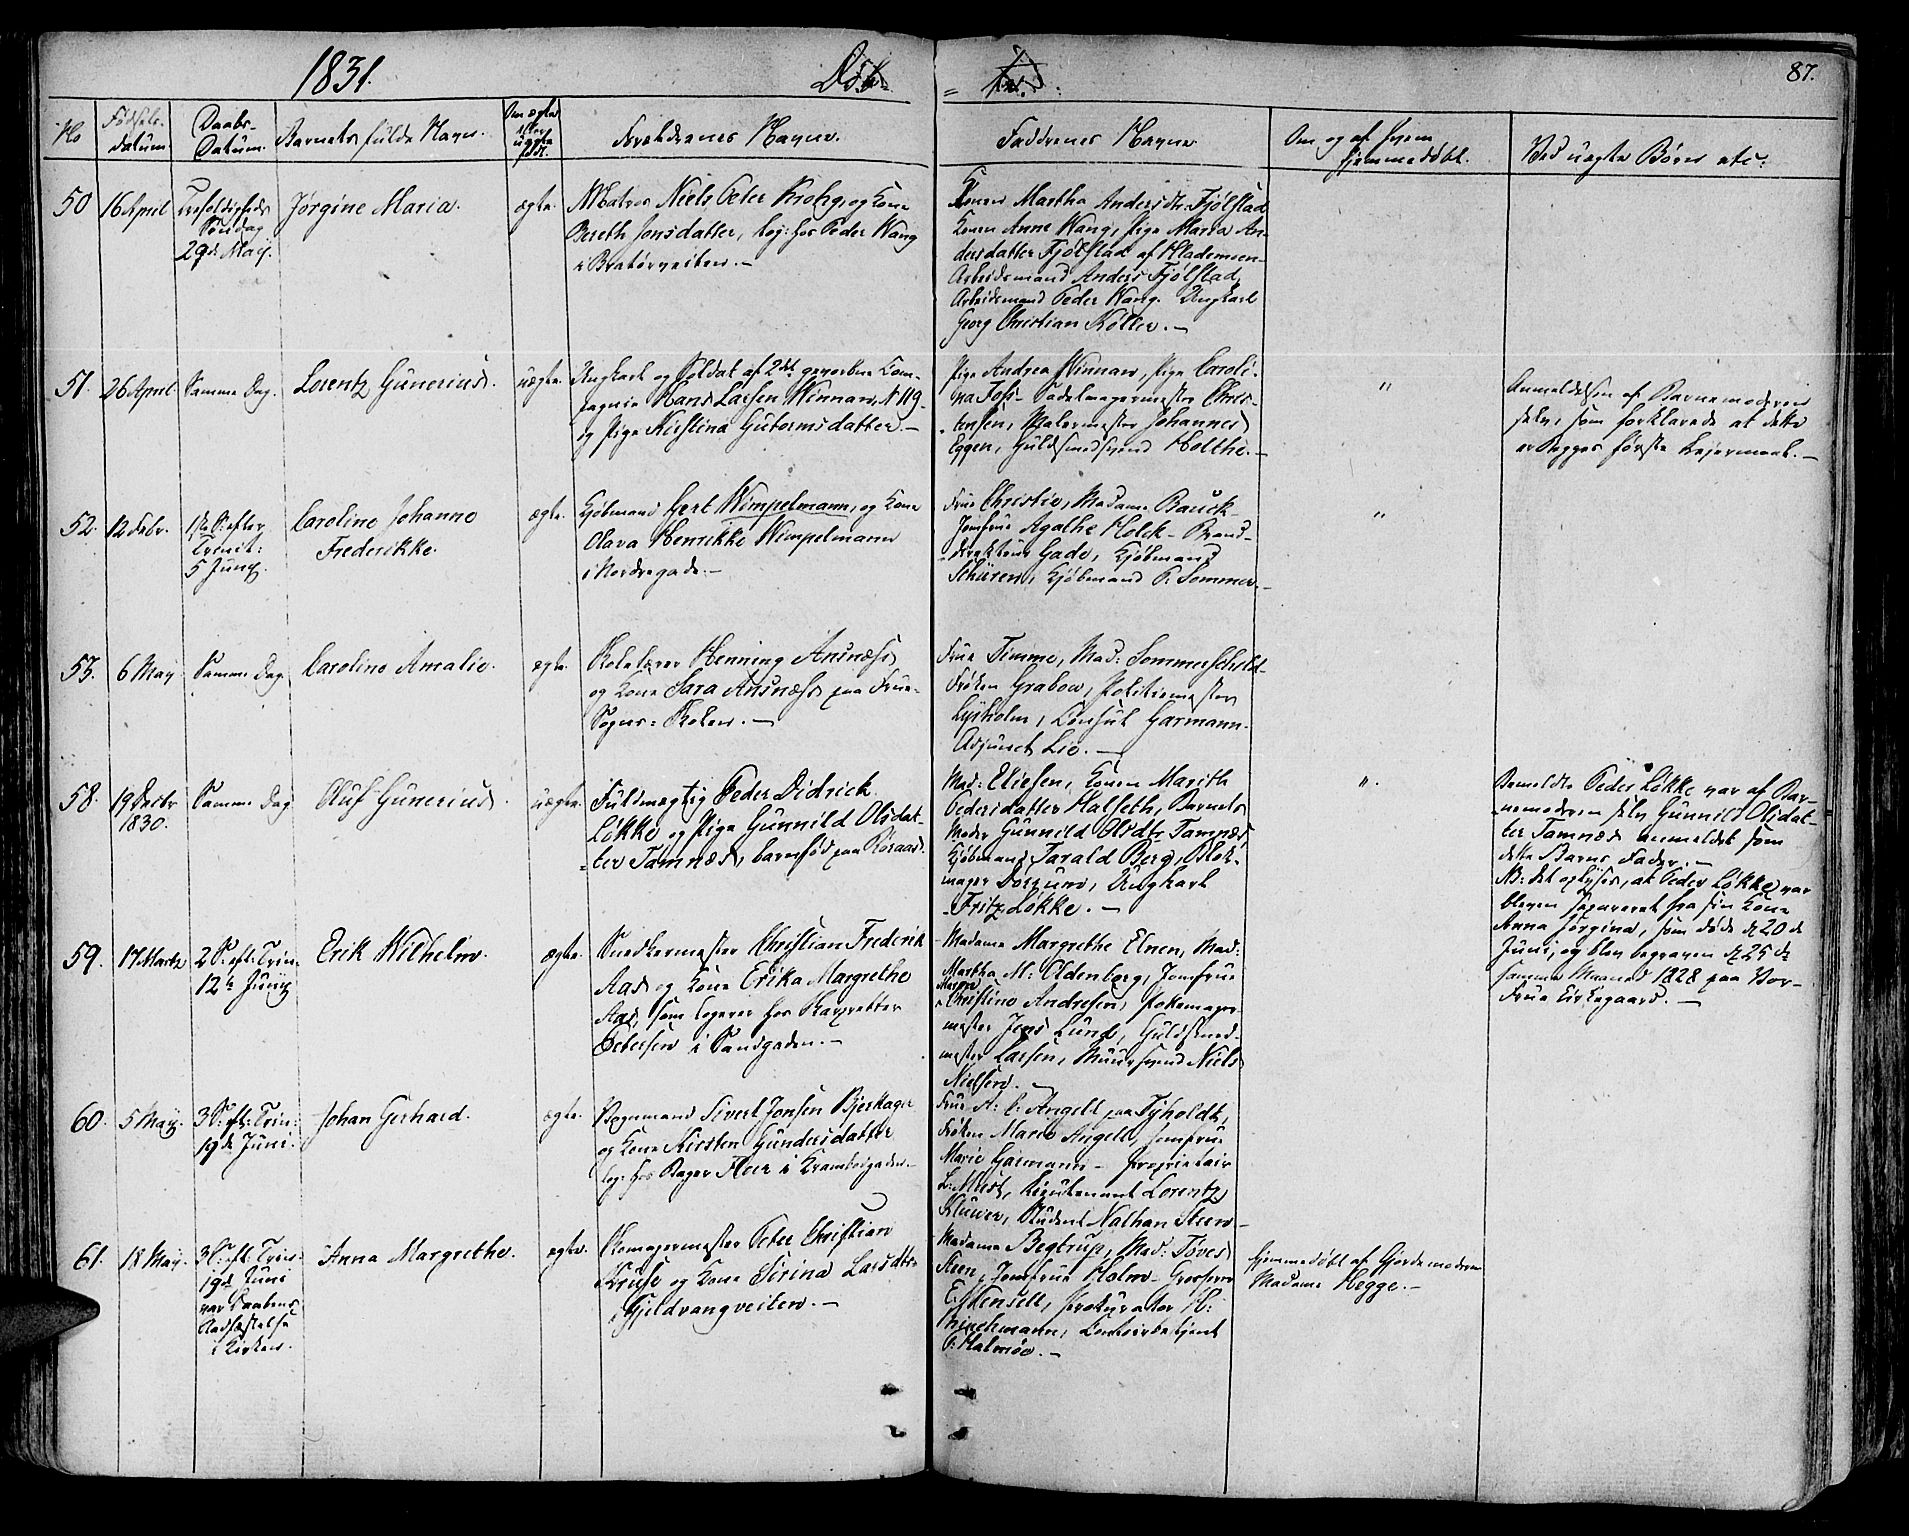 1831.
Døb-
= te.
87.
No
Fødsels-
datum
Daabs-
Datum.
Barnets fulde Navn.
Om ægte
eller
uægte
født.
Forældrenes Navne.
Faddernes Navne
Om og af hvem
hjemmedøbt.
Ved uægte Børn etc:
50
16 April
Trefoldigheds
Søndag
29de Maij.
Jørgine Maria.
ægte.
Matros Niels Peter Krohg, og Kone
Bereth Jonsdatter, log: hos Peder Wang
i Bratørveiten.-
Konen Martha Andersdtr Fjølstad
Konen Anne Wang, Pige Maria An-
dersdatter Fjølstad af Hlademoen-
Arbeidsmand Anders Fjølstad,
Arbeidsmand Peder Wang. Ungkarl
Georg Christian Køller.-
51.
26 April
Samme Dag.
Lorentz Gunerius.
uægte.
Ungkarl og Soldat af 2det gevorbne Com-
pagnie Hans Larsen Winnan, N 119-
og Pige Kirstina Gutormsdatter.-
Pige Andrea Winnan, Pige Caroli-
na Foss- Sadelmagermester Chris-
tensen, Malermester Johannes
Eggen, Guldsmedsvend Holthe.-
"
Anmeldelsen af Barnemoderen
selv, som forklarede at dette
er Begges første Leiermaal.-
52.
12 Febr.
1ste S: efter
Trinit:
5 Junij.
Caroline Johanne
Frederikke.
ægte.
Kjøbmand Gert Wimpelmann, og Kone
Olava Henrikke Wimpelmann
i Nordregade.-
Frue Christie, Madame Bauck-
Jomfrue Agathe Holck- Brand-
direkteur Gade, Kjøbmand
Schüren, Kjøbmand P. Sommer.-
"
53.
6 May
Samme Dag
Caroline Amalie.
ægte.
Skolelærer Henning Ansnæss
og Kone Sara Ansnæss paa Frue-
Sogns-Skolen.-
Frue Timme, Mad: Sommerschild-
Frøken Grabow, Politiemester
Lysholm, Consul Garmann-
Adjunct Lie.-
58.
19 Decbr
1830.
Samme Dag
Oluf Gunerius.
uægte.
Fuldmægtig Peder Didrick
Løkke og Pige Gunnild Olsdat-
ter Tamnæs, barnfød paa Røraas.
Mad: Eliesen, Konen Marith
Pedersdatter Halseth, Barnets
Moder Gunnild Olsdtr Tamnæs
Kjøbmand Tarald Berg, Blok-
mager Dorsum, Ungkarl
Fritz Løkke.-
".
Bemeldte Peder Løkke var af Bar-
nemoderen selv Gunnild Olsdat-
ter Tamnæs anmeldet som
dette Barns Fader.-
NB: det oplyses, at Peder Løkke var
bleven separeret fra sin Kone
Anna Jørgina, som døde d 20 de
Juni, og blev begraven d 25 de
samme Maaned 1828 paa Vor-
Frue Kirkegaard.-
59.
17 Martz
2 S: eft: Trin:
12te Junij
Erik Wilhelm.
ægte.
Snedkermester Christian Frederik
Aas og Kone Erika Margrethe
Aas, som logerer hos
Petersen i Sandgaden.-
Madame Margrethe Elnen, Mad:
Martha M: Oldenborg, Jomfrue
Maren
Christine Andresen,
mester Jens Lund, Guldsmed-
mester Larsen, Muursvend Niels
Nielsen.-
60.
5 Maij.
3 S: eft: Trin:
19de Juni.
Johan Gerhard.
ægte.
Vognmand Sivert Jonsen Bjerkager
og Kone Kirsten Gundersdatter
log: hos Bager Floer i Krambodgaden-
Frue A: C: Angell paa Tyholdt,
Frøken Marie Angell, Jomfrue
Marie Garmann- Proprietair
L. Must, Lieutenant Lorentz
Klüwer, Student Nathan Steen-
61.
18 May.
3 S: eft: Trin-
19de Juni
var Daabens
Stadfæstelse
i Kirken.
Anna Margrethe.
ægte.
Skomagermester Peter Christian
Kruse og Kone Sirina Larsdtr
i Gjeldvangveiten.-
Madame Begtrup, Mad: Toves
Steen, Jomfrue Holm- Grosserer
E. Jenssen, Prokurator H:
Finchmann, Contoirbetjent
P: Malmøe.-
Hjemmedøbt af Gjordemoderen
Madame Hegge.-